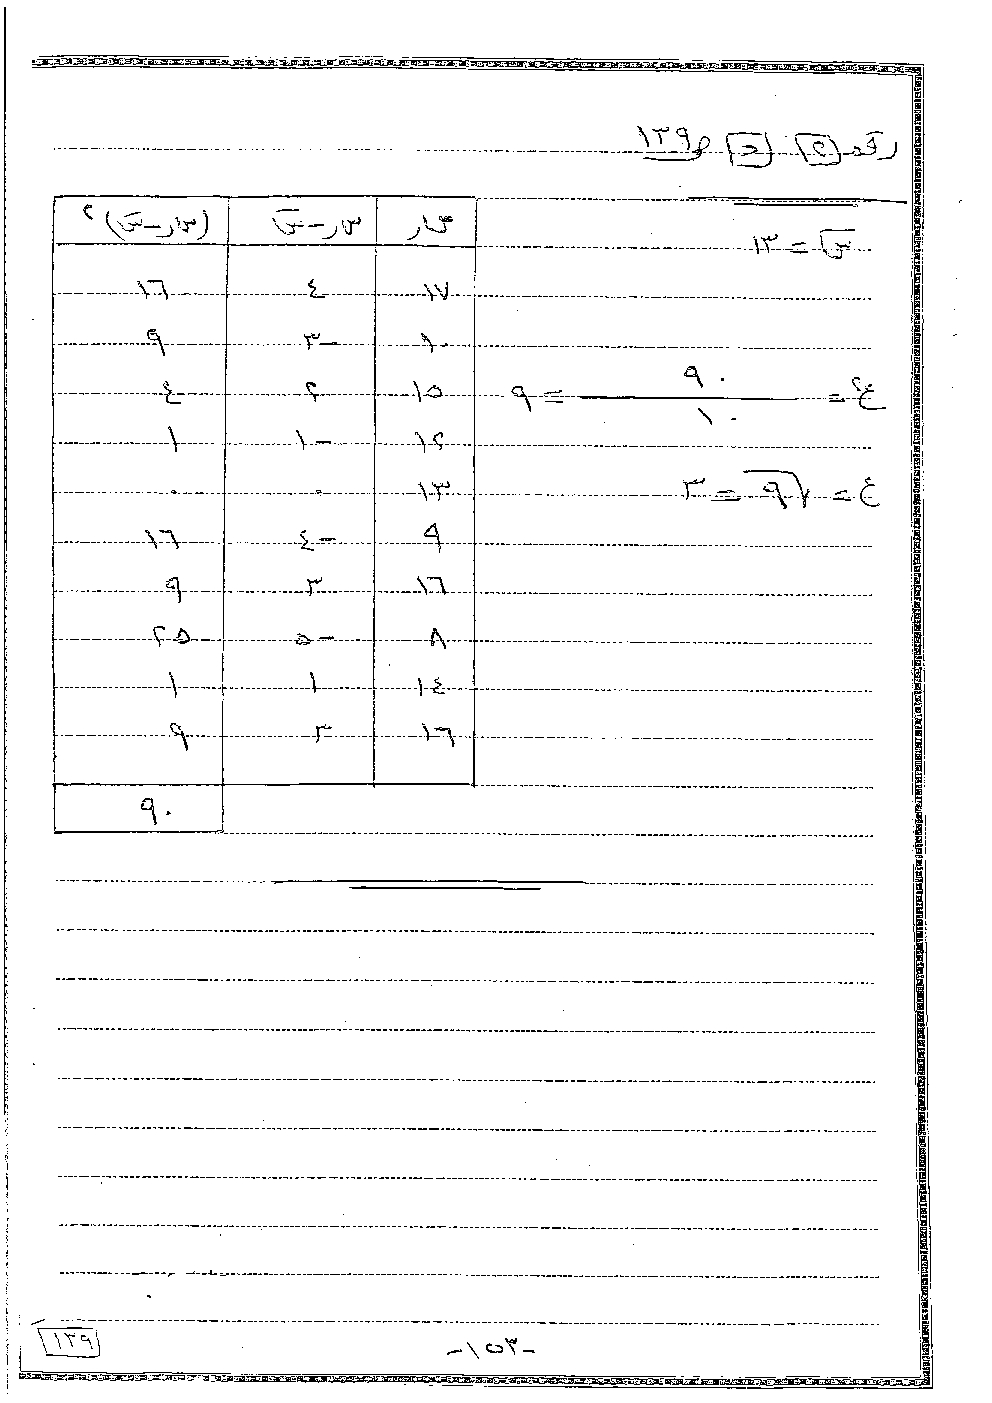 رقم ٢ د ص ١٣٩
س̄ = ١٣
ع² = ٩٠ / ١٠ = ٩
ع = √٩ = ٣
س ر | س ر - س̄ | (س ر - س̄)²
١٧ | ٤ | ١٦
١٠ | -٣ | ٩
١٥ | ٢ | ٤
١٢ | -١ | ١
١٣ | ٠ | ٠
٩ | -٤ | ١٦
١٦ | ٣ | ٩
٨ | -٥ | ٢٥
١٤ | ١ | ١
١٦ | ٣ | ٩
٩٠
-١٥٣-
١٣٩